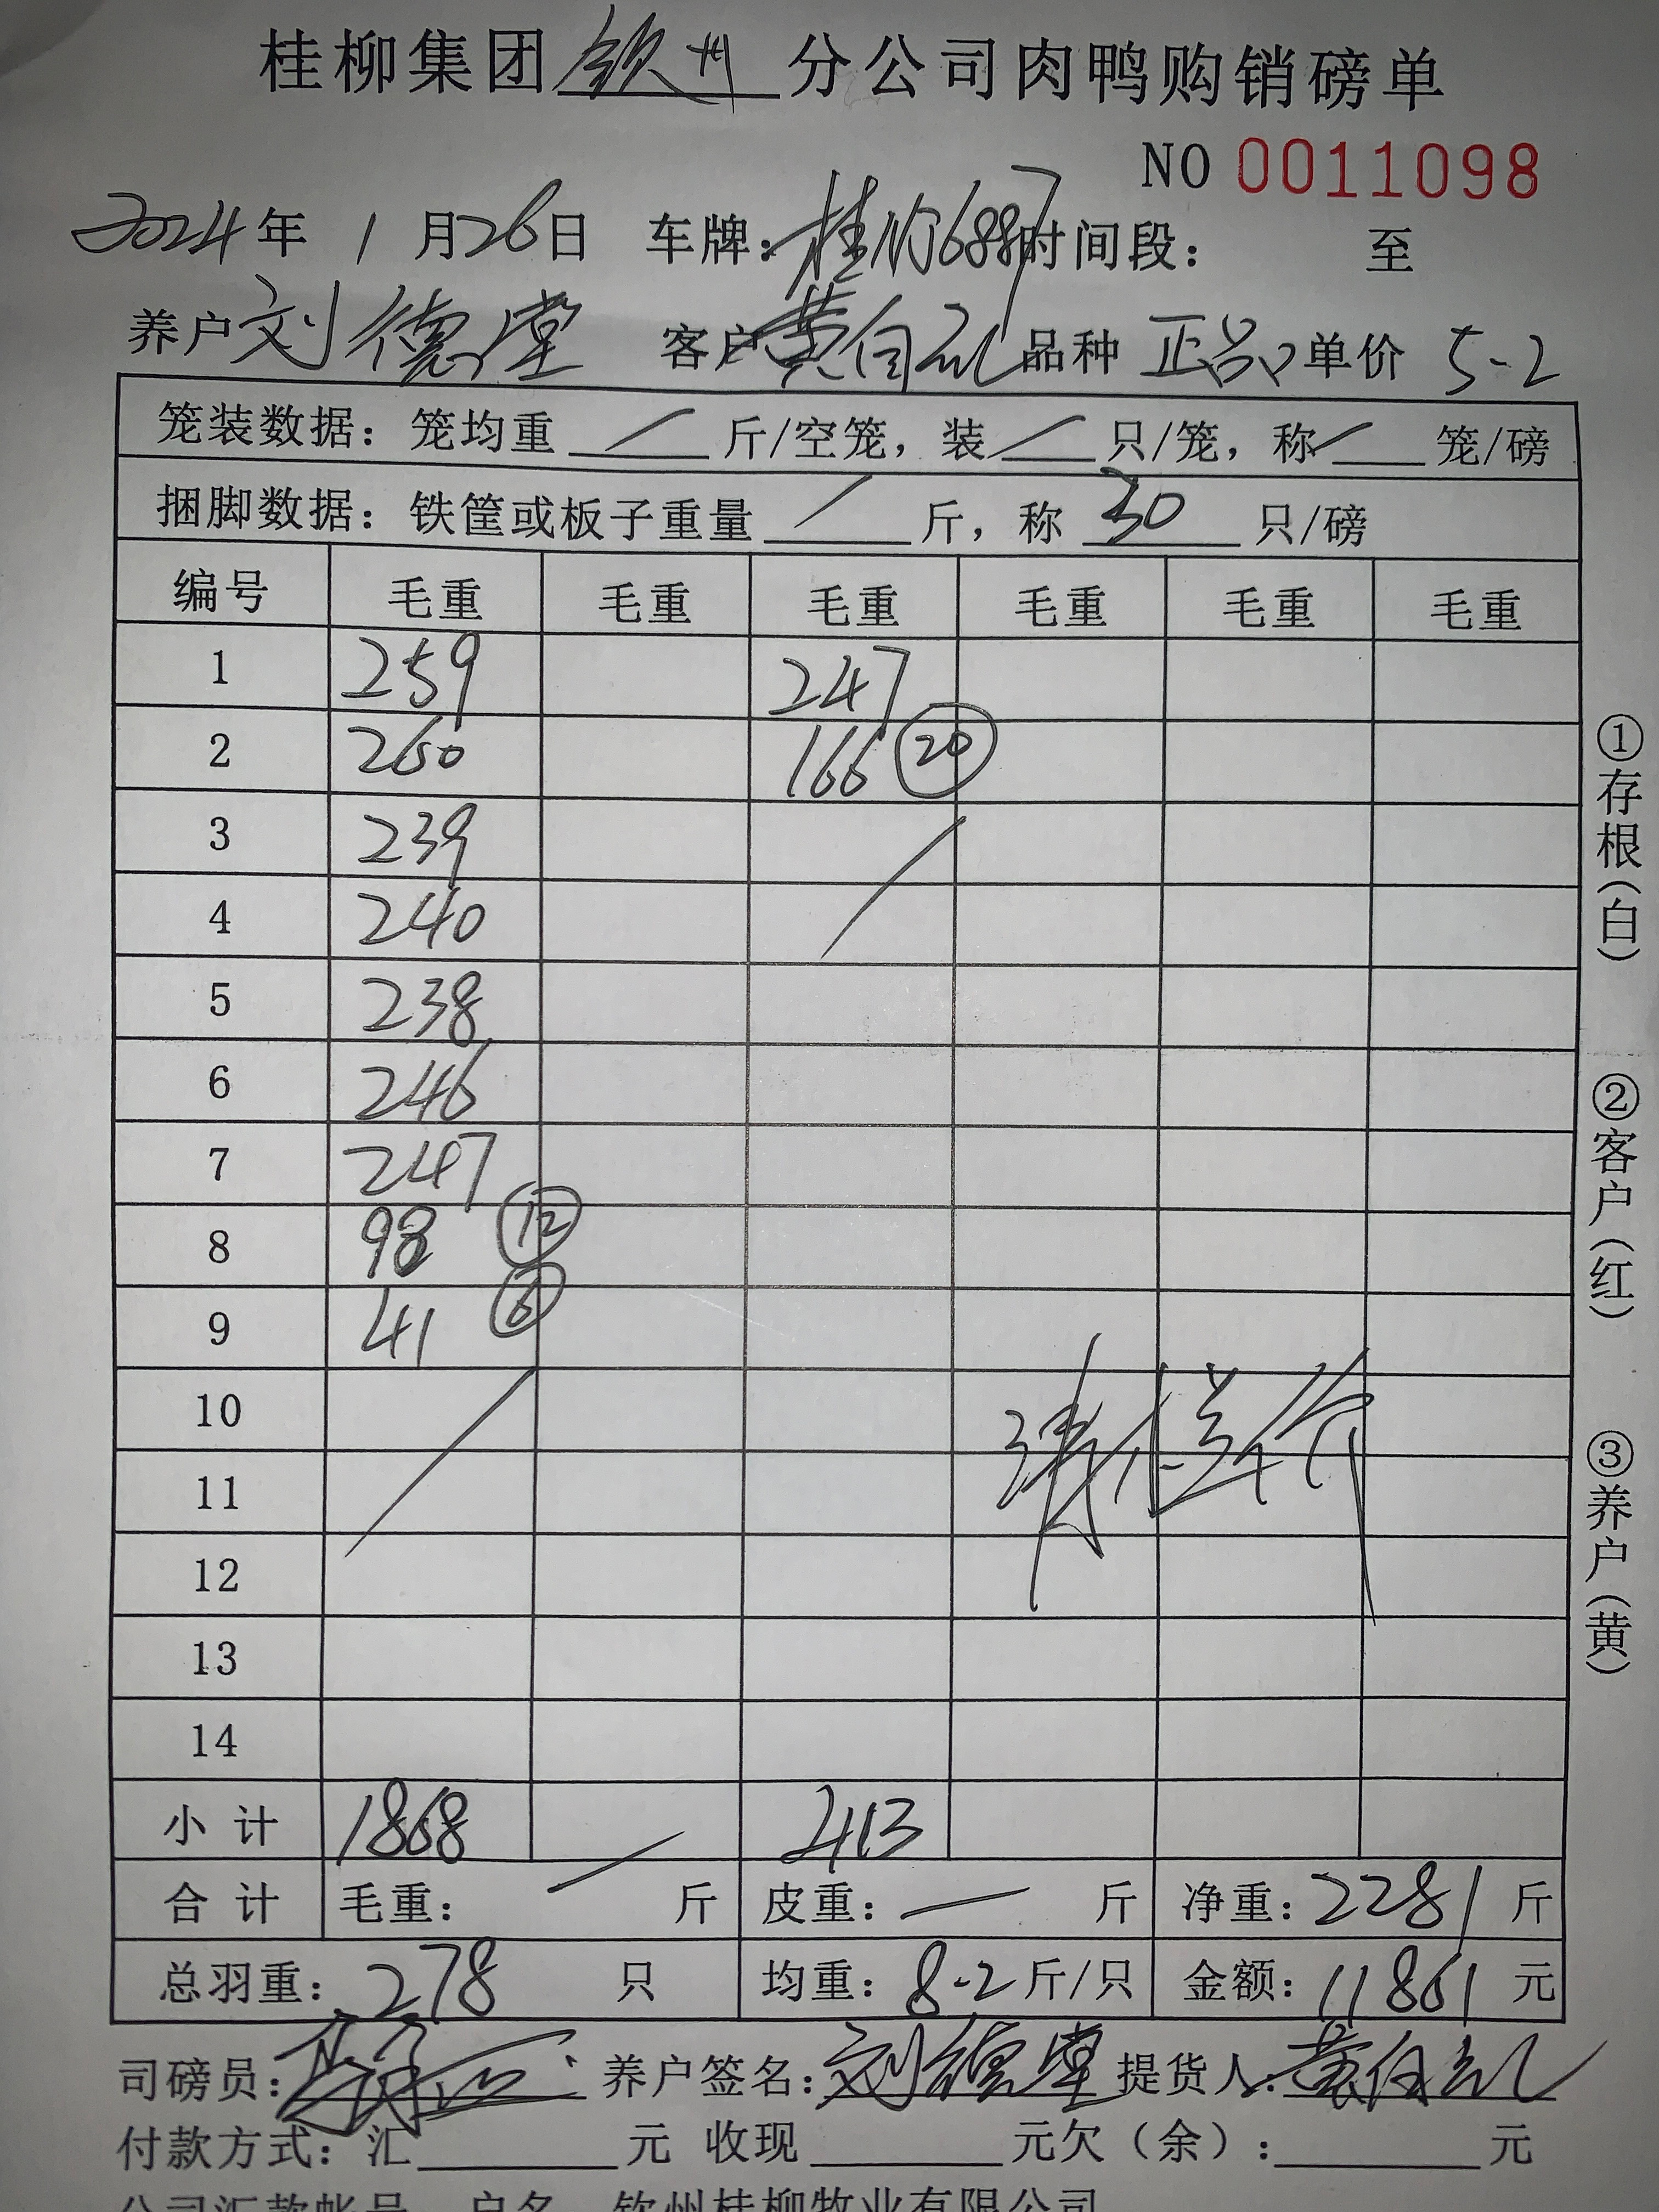 桂柳集团钦州分公司肉鸭购销磅单
NO 0011098
2024年 1 月26日 车牌:桂 6887时间段: 至
养户刘德堂 客户黄 品种 正品 单价 5-2
笼装数据:笼均重 / 斤/空笼,装 / 只/笼,称 / 笼/磅
捆脚数据:铁筐或板子重量 / 斤,称 30 只/磅
编号 毛重 毛重 毛重 毛重 毛重 毛重
1 259 247
2 260 166 ⑳
3 239
4 240
5 238
6 246
7 247
8 98 ⑫
9 41 ⑥
10
11
12
13
14
小 计 1868 413
合 计 毛重: 斤 皮重: 斤 净重:2281 斤
总羽重:278 只 均重:8-2斤/只 金额:11861 元
司磅员: 养户签名:刘德堂 提货人:黄
付款方式:汇 元 收现 元欠(余): 元
公司汇款帐号 户名 钦州桂柳牧业有限公司
①存根(白)
②客户(红)
③养户(黄)